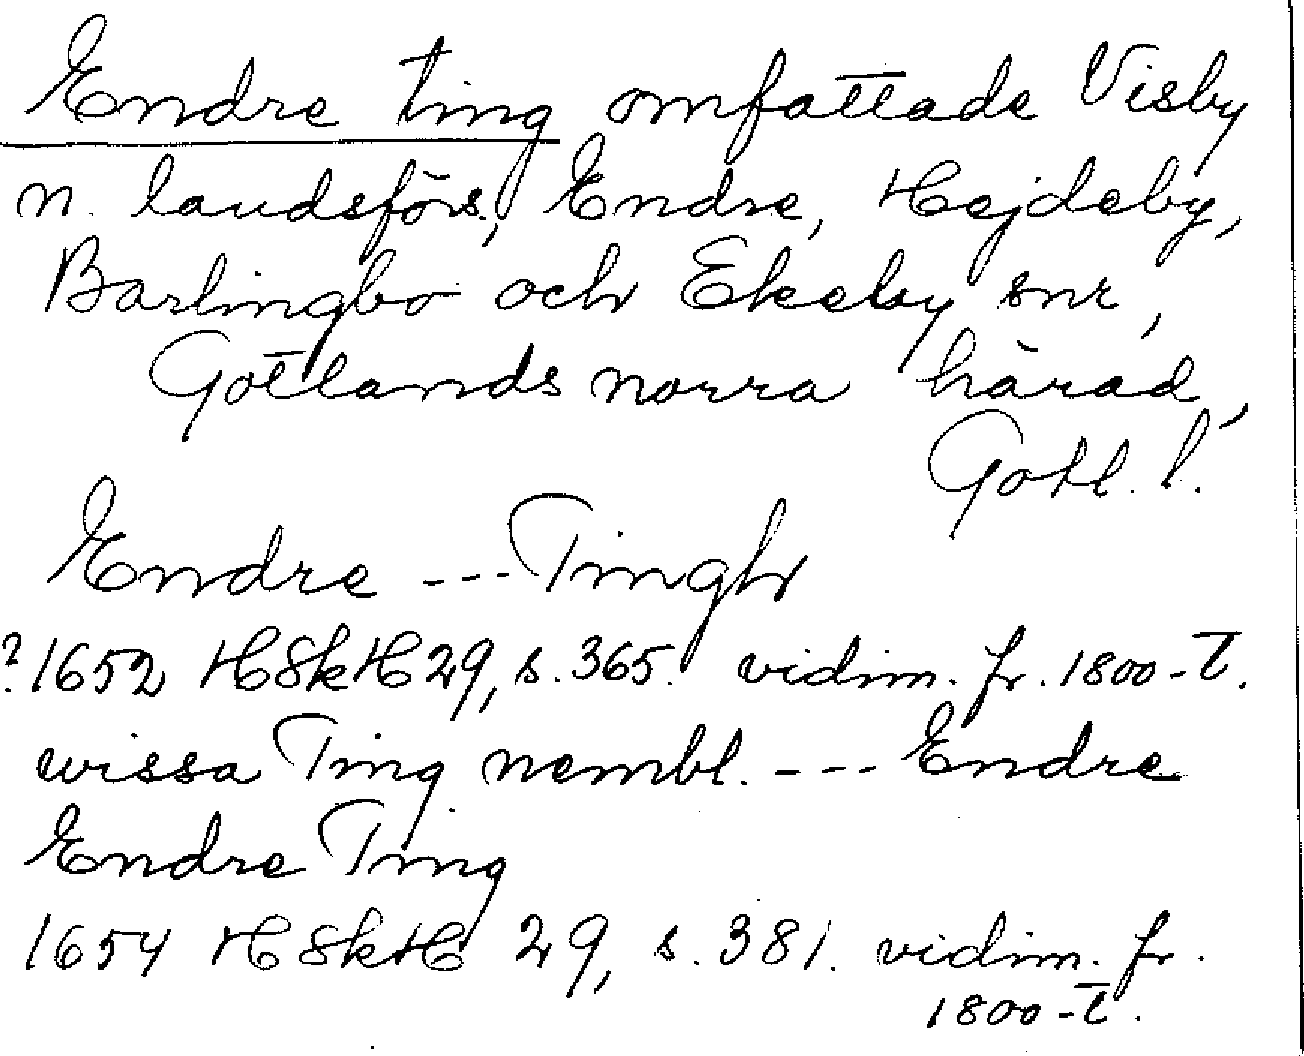 Endre ting omfattade Visby
n. landsförs., Endre, Hejdeby,
Barlingbo och Ekeby snr,
Gotlands norra härad,
Gotl. l.
Endre --- Tingh
?1652 HSkH 29, s. 365. vidim. fr. 1800-t.
wissa Ting nembl. --- Endre
Endre Ting
1654 HSkH 29, s. 381. vidim. fr.
1800-t.